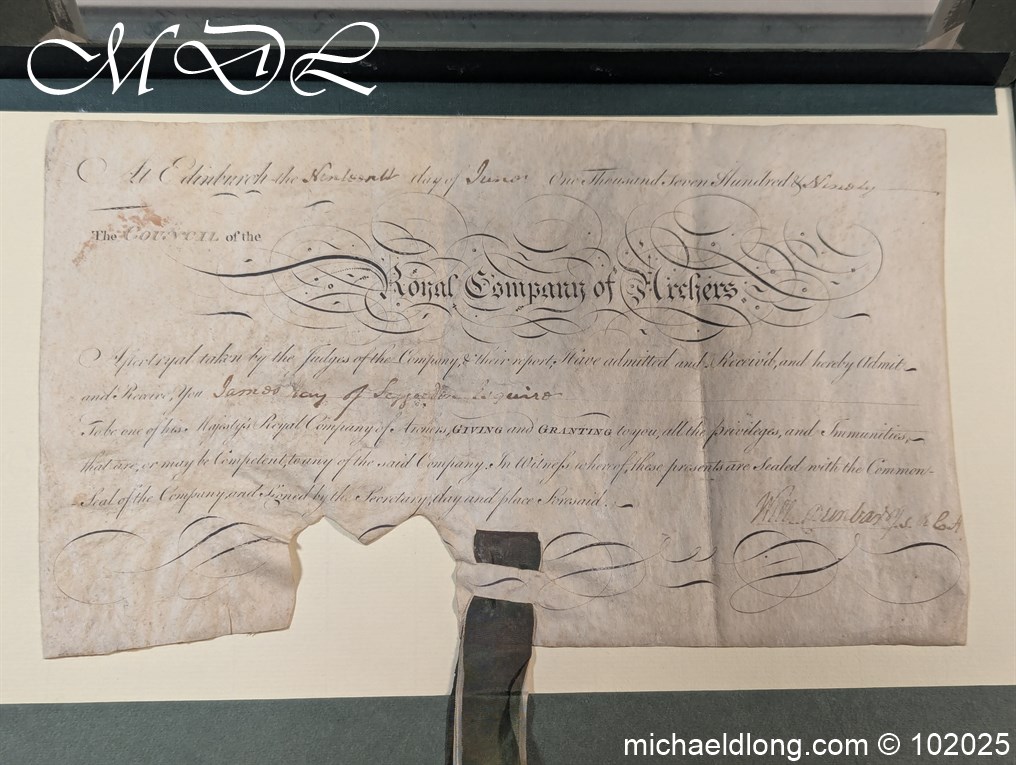 MDL
At Edinburgh the Ninteenth day of June One Thousand Seven Hundred & Ninety
The COUNCIL of the
Royal Company of Archers
After tryal taken by the Judges of the Company, & their report, Have admitted and Receiv'd, and hereby Admit
and Receive, You James of Esquire
To be one of his Majesty's Royal Company of Archers, GIVING and GRANTING to you, all the Privileges, and Immunities,
that are, or may be Competent, to any of the said Company. In Witness whereof, these presents are Sealed with the Common
Seal of the Company, and Signed by the Secretary, day and place foresaid.
Will Dunbar
michaeldlong.com © 102025